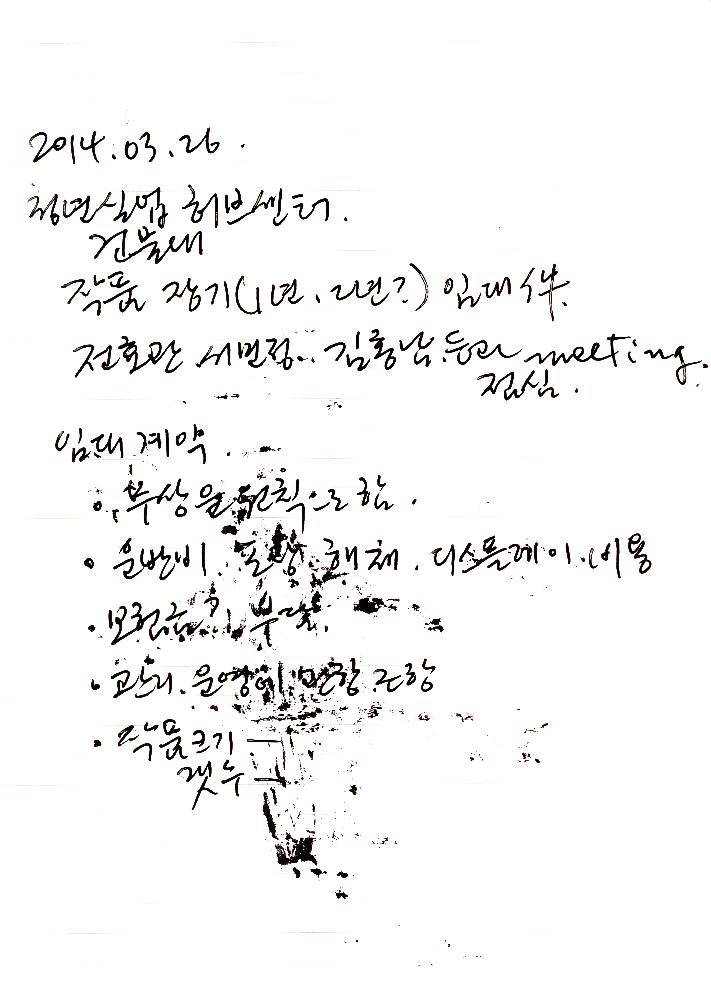 2014.03.26.
청년실업 허브센터.
건물내
작품 장기(1년, 2년?) 임대件.
전호관 서면정.. 김홍남.등과 meeting.
점심.
임대 계약.
• 무상을 원칙으로 함.
• 운반비. 포장. 해체. 디스플레이.비용
• 보험금? 부담.
• 관리.운영에 만항 조항
• 작품크기
갯수